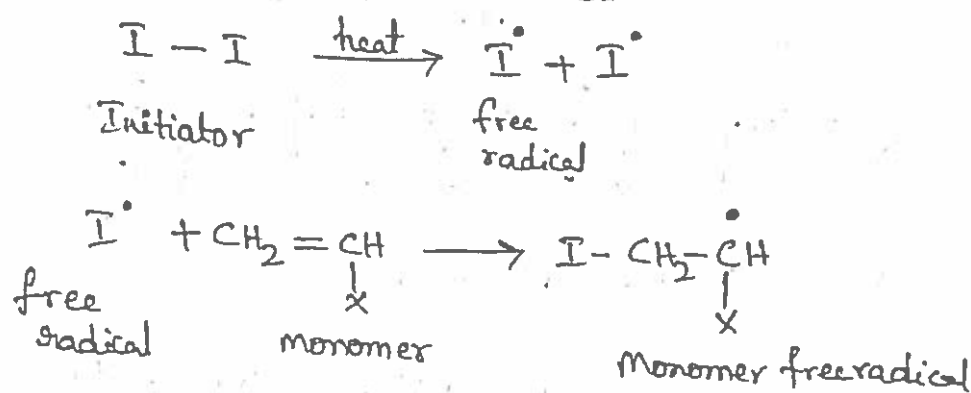 I – I heat→ I• + I•
Initiator free
radical
I• + CH2 = CH ⟶ I – CH2 – ĊH
free | |
radical X X
monomer Monomer freeradical